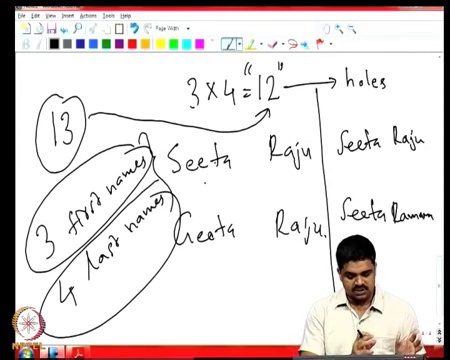 File Edit View Insert Actions Tools Help
Page Width
3 × 4 = "12" → holes
13
3 first names
4 last names
Seeta Raju
Geeta Raju.
Seeta Raju
Seeta Ramana
NPTEL